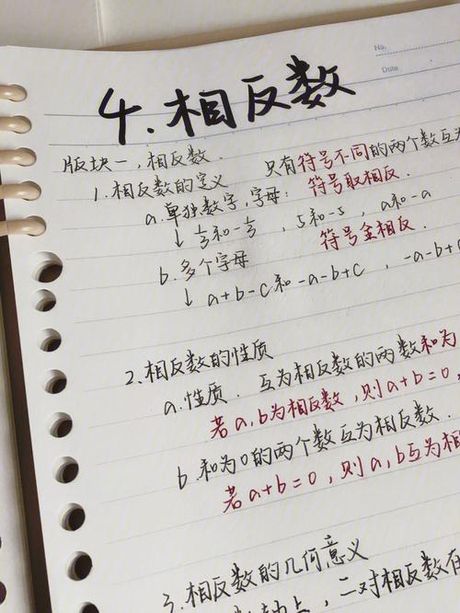 No.
Date
4.相反数
版块一,相反数. 只有符号不同的两个数互为
1.相反数的定义
a.单独数字,字母: 符号取相反.
↓ 1/3和-1/3 , 5和-5 , a和-a
b.多个字母 符号全相反.
↓ a+b-c和-a-b+c , -a-b+c
2.相反数的性质
a.性质. 互为相反数的两数和为
若a,b为相反数,则a+b=0,
b.和为0的两个数互为相反数.
若a+b=0,则a,b互为相
3.相反数的几何意义
,二对相反数在